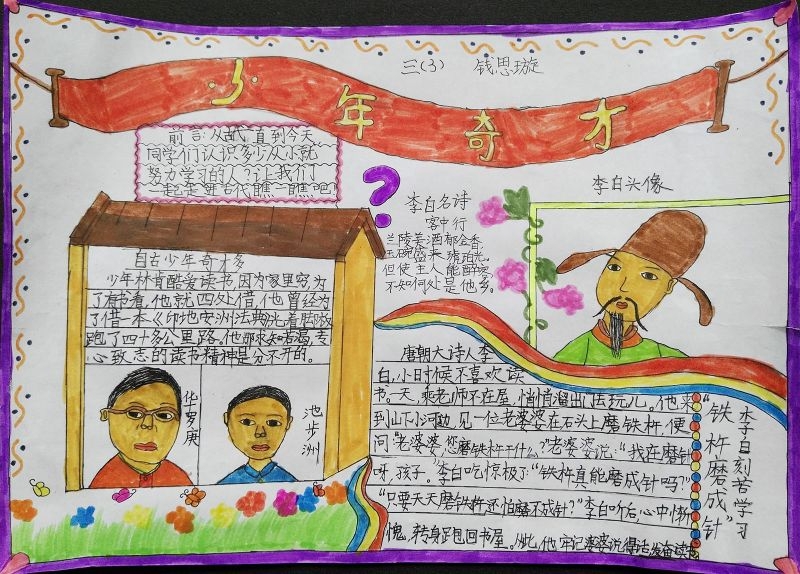 三(3) 钱思璇
少年奇才
前言:从古一直到今天
同学们认识多少从小就
努力学习的人?让我们
一起走进古代瞧一瞧吧
?
自古少年奇才多
少年林肯酷爱读书,因为家里穷,为
了有书看,他就四处借,他曾经为
了借一本《印地安州法典》光着脚板
跑了四十多公里路。他那求知若渴,专
心致志的读书精神是分不开的。
华罗庚
池步洲
李白名诗
客中行
兰陵美酒郁金香,
玉碗盛来琥珀光。
但使主人能醉客,
不知何处是他乡。
李白头像
唐朝大诗人李
白,小时候不喜欢读
书。一天,乘老师不在屋,悄悄溜出门去玩儿。他来
到山下小河边,见一位老婆婆在石头上磨铁杵,便
问:"老婆婆,您磨铁杵干什么?"老婆婆说:"我在磨针
呀,孩子。"李白吃惊极了:"铁杵真能磨成针吗?"
"只要天天磨铁杵还怕磨不成针?"李白听后,心中惭
愧,转身跑回书屋。从此,他牢记婆婆说得话发奋读书
李白刻苦学习
"铁杵磨成针"